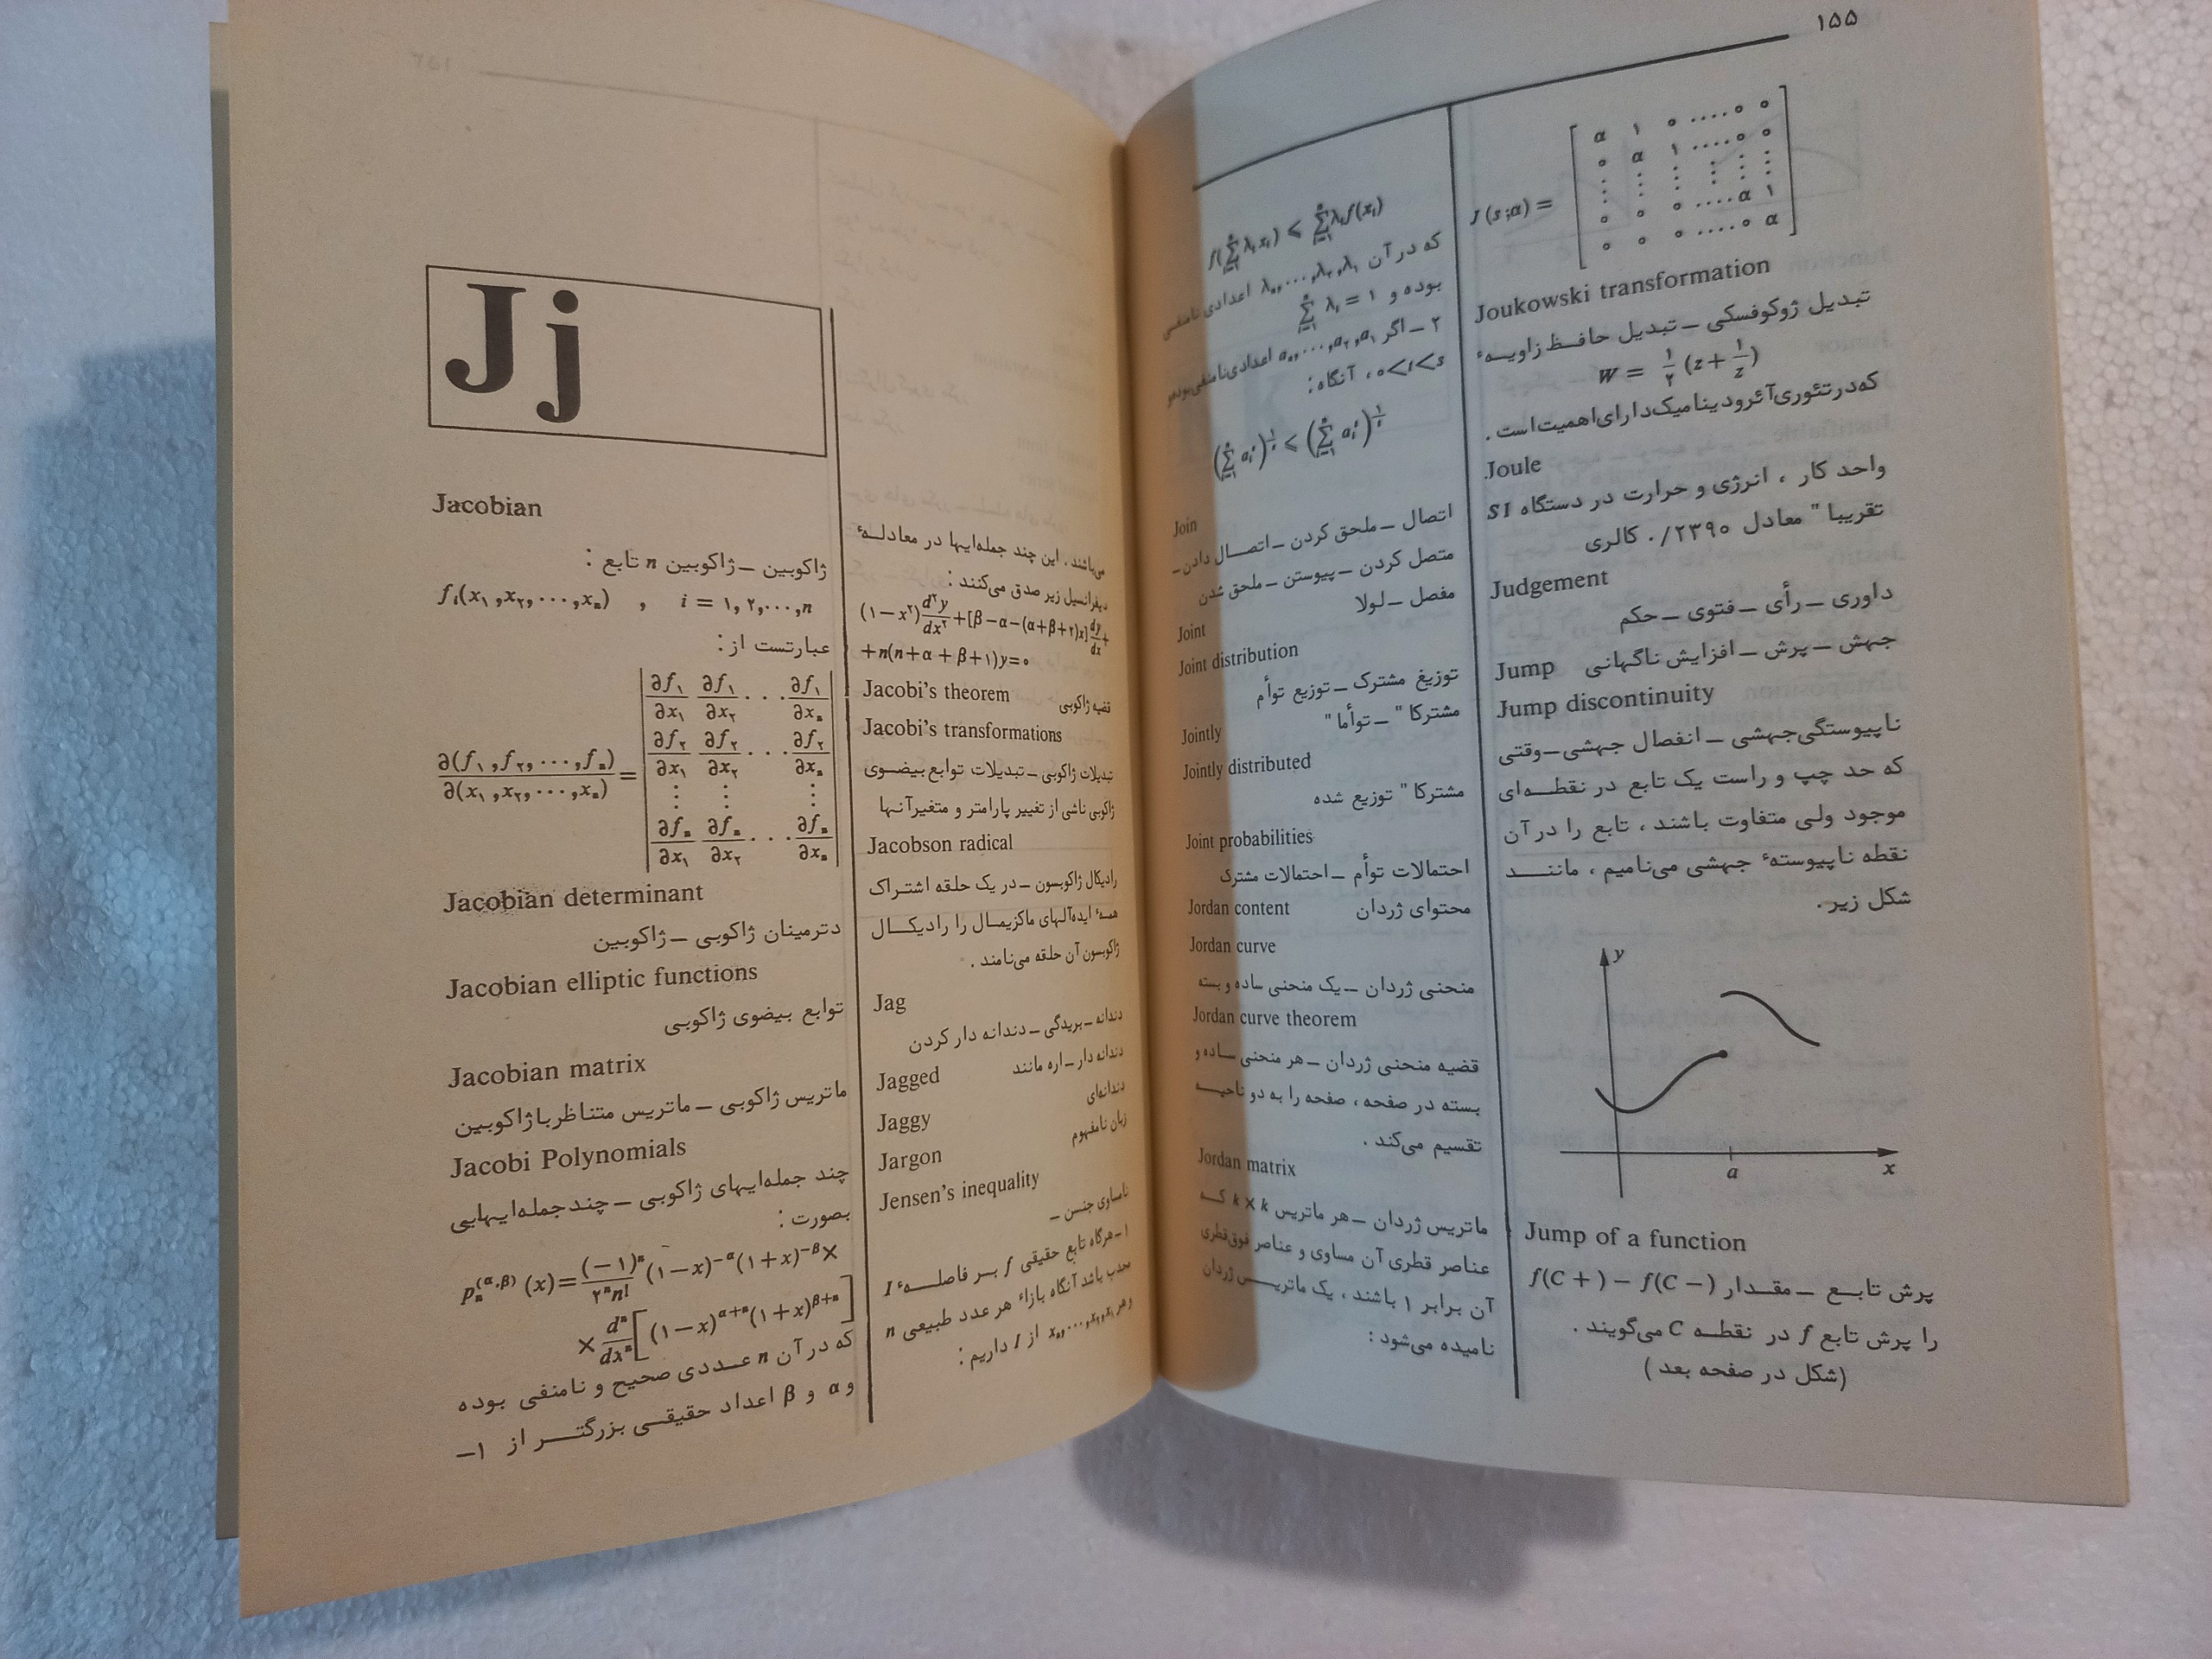 Jj
Jacobian
ژاکوبین – ژاکوبین n تابع :
fᵢ(x₁ ,x₂,...,xₙ) , i = ۱,۲,...,n
عبارتست از :
∂(f₁ ,f₂, ...,fₙ) / ∂(x₁ ,x₂, ...,xₙ) =
∂f₁/∂x₁ ∂f₁/∂x₂ . . . ∂f₁/∂xₙ
∂f₂/∂x₁ ∂f₂/∂x₂ . . . ∂f₂/∂xₙ
⋮ ⋮ ⋮
∂fₙ/∂x₁ ∂fₙ/∂x₂ . . . ∂fₙ/∂xₙ
Jacobian determinant
دترمینان ژاکوبی – ژاکوبین
Jacobian elliptic functions
توابع بیضوی ژاکوبی
Jacobian matrix
ماتریس ژاکوبی – ماتریس متناظر با ژاکوبین
Jacobi Polynomials
چند جمله‌ایهای ژاکوبی – چند جمله‌ایهایی
بصورت :
pₙ^(α,β) (x) = (−۱)ⁿ/۲ⁿn! (۱−x)^−α (۱+x)^−β ×
× dⁿ/dxⁿ [(۱−x)^α+n (۱+x)^β+n]
که در آن n عددی صحیح و نامنفی بوده
و α و β اعداد حقیقی بزرگتر از ۱–
می‌باشند . این چند جمله‌ایها در معادلهٔ
دیفرانسیل زیر صدق می‌کنند :
(۱−x²) d²y/dx² + [β−α−(α+β+۲)x] dy/dx +
+n(n+α+β+۱)y=۰
Jacobi's theorem قضیه ژاکوبی
Jacobi's transformations
تبدیلات ژاکوبی – تبدیلات توابع بیضوی
ژاکوبی ناشی از تغییر پارامتر و متغیر آنها
Jacobson radical
رادیکال ژاکوبسون – در یک حلقه اشتراک
همهٔ ایده‌آلهای ماکزیمال را رادیکال
ژاکوبسون آن حلقه می‌نامند .
Jag
دندانه – بریدگی – دندانه دار کردن
Jagged دندانه دار – اره مانند
Jaggy دندانه‌ای
Jargon زبان نامفهوم
Jensen's inequality
نامساوی جنسن –
۱– هرگاه تابع حقیقی f بر فاصلهٔ I
محدب باشد آنگاه بازاء هر عدد طبیعی n
و هر x₁, x₂, ..., xₙ از I داریم :
۱۵۵
f(∑ᵢ₌₁ⁿ λᵢxᵢ) ⩽ ∑ᵢ₌₁ⁿ λᵢf(xᵢ)
که در آن λ₁, λ₂, ..., λₙ اعدادی نامنفی
بوده و ∑ᵢ₌₁ⁿ λᵢ = ۱
۲ – اگر a₁, a₂, ..., aₙ اعدادی نامنفی بوده و
۰<t<s ، آنگاه :
(∑ᵢ₌₁ⁿ aᵢˢ)^(۱/s) ⩽ (∑ᵢ₌₁ⁿ aᵢᵗ)^(۱/t)
Join
اتصال – ملحق کردن – اتصال دادن –
متصل کردن – پیوستن – ملحق شدن
Joint مفصل – لولا
Joint distribution
توزیع مشترک – توزیع توأم
Jointly مشترکا" – توأما"
Jointly distributed
مشترکا" توزیع شده
Joint probabilities
احتمالات توأم – احتمالات مشترک
Jordan content محتوای ژردان
Jordan curve
منحنی ژردان – یک منحنی ساده و بسته
Jordan curve theorem
قضیه منحنی ژردان – هر منحنی ساده و
بسته در صفحه ، صفحه را به دو ناحیه
تقسیم می‌کند .
Jordan matrix
ماتریس ژردان – هر ماتریس k×k که
عناصر قطری آن مساوی و عناصر فوق قطری
آن برابر ۱ باشند ، یک ماتریس ژردان
نامیده می‌شود :
J (s;α) =
α ۱ ۰ .... ۰ ۰
۰ α ۱ .... ۰ ۰
⋮ ⋮ ⋮ ⋮ ⋮ ⋮
۰ ۰ ۰ .... α ۱
۰ ۰ ۰ .... ۰ α
Joukowski transformation
تبدیل ژوکوفسکی – تبدیل حافظ زاویهٔ
W = ۱/۲ (z + ۱/z)
که در تئوری آئرودینامیک دارای اهمیت است .
Joule
واحد کار ، انرژی و حرارت در دستگاه SI
تقریبا" معادل ۰/۲۳۹۰ کالری
Judgement
داوری – رأی – فتوی – حکم
Jump جهش – پرش – افزایش ناگهانی
Jump discontinuity
ناپیوستگی جهشی – انفصال جهشی – وقتی
که حد چپ و راست یک تابع در نقطه‌ای
موجود ولی متفاوت باشند ، تابع را در آن
نقطه ناپیوستهٔ جهشی می‌نامیم ، مانند
شکل زیر .
y
a
x
Jump of a function
پرش تابع – مقدار f(C +) − f(C −)
را پرش تابع f در نقطه C می‌گویند .
(شکل در صفحه بعد )